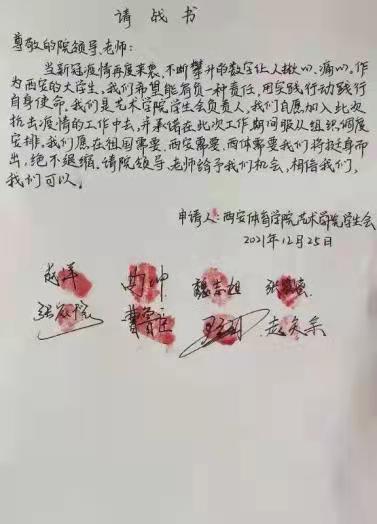 请战书
尊敬的院领导、老师:
当新冠疫情再度来袭,不断攀升的数字让人揪心、痛心。作
为西安的大学生,我们希望能肩负一种责任,用实践行动践行
自身使命。我们是艺术学院学生会负责人,我们自愿加入此次
抗击疫情的工作中去,并承诺在此次工作期间服从组织调度
安排。我们愿在祖国需要、西安需要、西体需要我们将挺身而
出,绝不退缩。请院领导、老师给予我们机会,相信我们,
我们可以。
申请人:西安体育学院艺术学院学生会
2021年12月25日